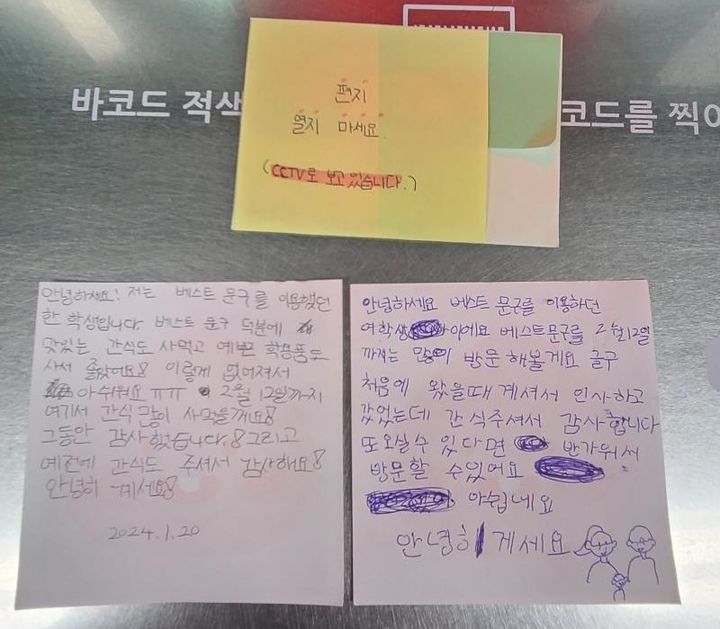 바코드 적색
코드를 찍어
편지
열지 마세요.
(CCTV로 보고 있습니다.)
안녕하세요! 저는 베스트 문구를 이용했던
한 학생입니다. 베스트 문구 덕분에
맛있는 간식도 사먹고 예쁜 학용품도
사서 좋았어요! 이렇게 없어져서
아쉬워요 ㅠㅠ 2월 12일까지
여기서 간식 많이 사먹을께요!
그동안 감사했습니다.! 그리고
예전에 간식도 주셔서 감사해요!
안녕히 계세요!
2024.1.20
안녕하세요 베스트 문구를 이용하던
여학생 이에요 베스트문구를 2월12일
까지는 많이 방문 해볼게요
처음에 왔을때 계셔서 인사하고
갔었는데 간식주셔서 감사합니다
또 오실수 있다면 반가워서
방문할 수 있어요
아쉽네요
안녕히 게세요